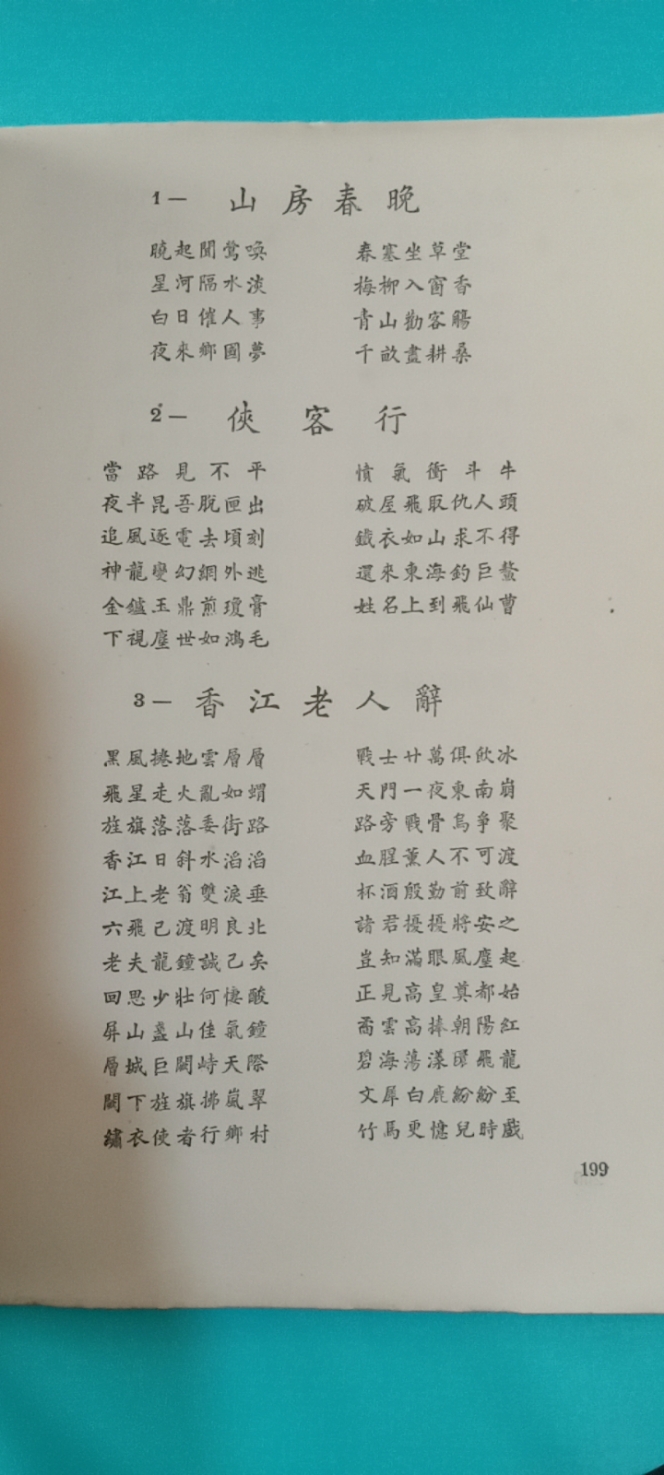 1— 山房春晚
曉起聞鶯喚 春寒坐草堂
星河隔水淡 梅柳入窗香
白日催人事 青山勸客觴
夜來鄉國夢 千畝盡耕桑
2— 俠客行
當路見不平 憤氣衝斗牛
夜半昆吾脫匣出 破屋飛取仇人頭
追風逐電去頃刻 鐵衣如山求不得
神龍變幻網外逃 還來東海釣巨鰲
金鑪玉鼎煎瓊膏 姓名上到飛仙曹
下視塵世如鴻毛
3— 香江老人辭
黑風捲地雲層層 戰士廿萬俱飲冰
飛星走火亂如蝟 天門一夜東南崩
旌旗落落委街路 路旁戰骨烏爭聚
香江日斜水滔滔 血腥薰人不可渡
江上老翁雙淚垂 杯酒殷勤前致辭
六飛已渡明良北 諸君擾擾將安之
老夫龍鐘誠已矣 豈知滿眼風塵起
回思少壯何悽酸 正見高皇奠都始
屏山盞山佳氣鐘 矞雲高捧朝陽紅
層城巨闕峙天際 碧海蕩漾躍飛龍
闕下旌旗拂嵐翠 文犀白鹿紛紛至
繡衣使者行鄉村 竹馬更憶兒時戲
199